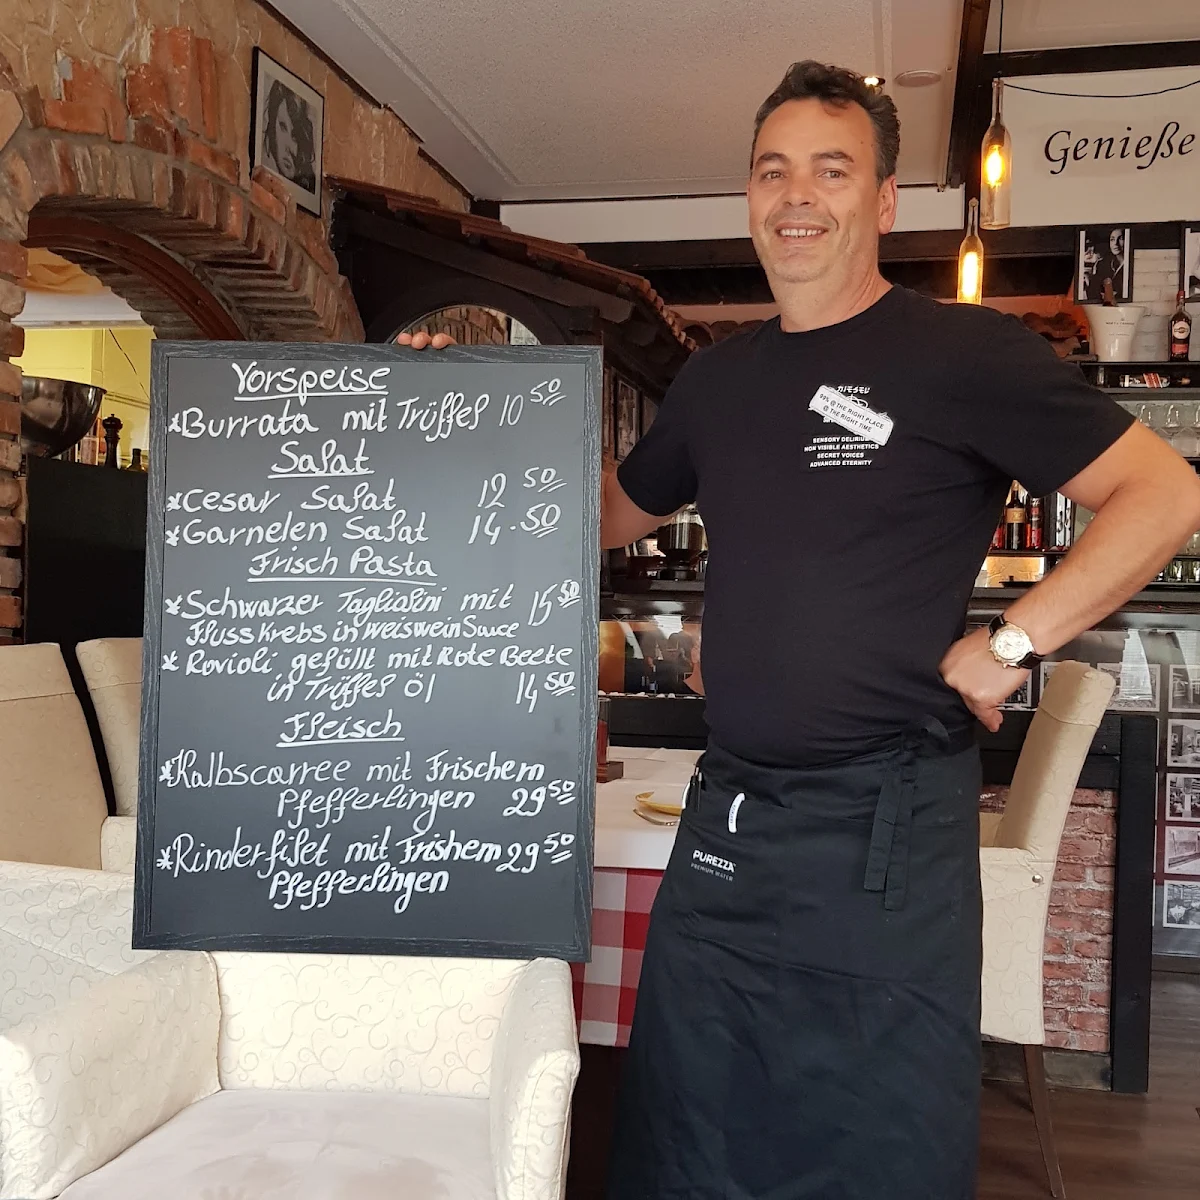 Vorspeise
*Burrata mit Trüffel 10 50
Salat
*Cesar Salat 12 50
*Garnelen Salat 14.50
Frisch Pasta
*Schwarzer Tagliolini mit 15 50
Fluss Krebs in weiswein Sauce
*Ravioli gefüllt mit Rote Beete
in Trüffel Öl 14 50
Fleisch
*Kalbscarree mit Frischem
Pfefferlingen 29 50
*Rinderfilet mit Frishem 29 50
Pfefferlingen
Genieße
DIESEL
99% @ THE RIGHT PLACE
@ THE RIGHT TIME
SENSORY DELIRIUM
NON VISIBLE AESTHETICS
SECRET VOICES
ADVANCED ETERNITY
PUREZZA
PREMIUM WATER